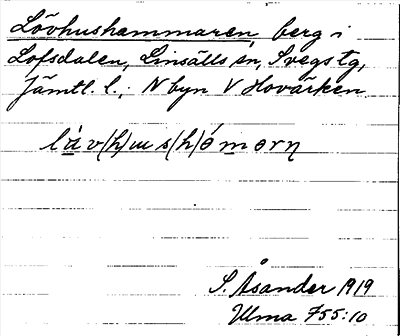 Lövhushammaren, berg i
Lofsdalen, Linsälls sn, Svegs tg,
Jämtl. l.; N byn V Hovärken
lù̱v(h)ɯs(h)ómərη
S. Åsander 1919
Ulma 755:10